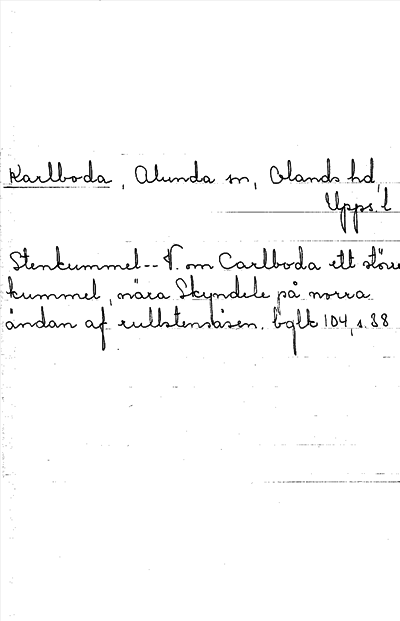 Karlboda, Alunda sn, Olands hd,
Upps. l
Stenkummel -- N. om Carlboda ett större
kummel, nära Skyndele på norra
ändan af rullstensåsen. bglt 104, s. 38